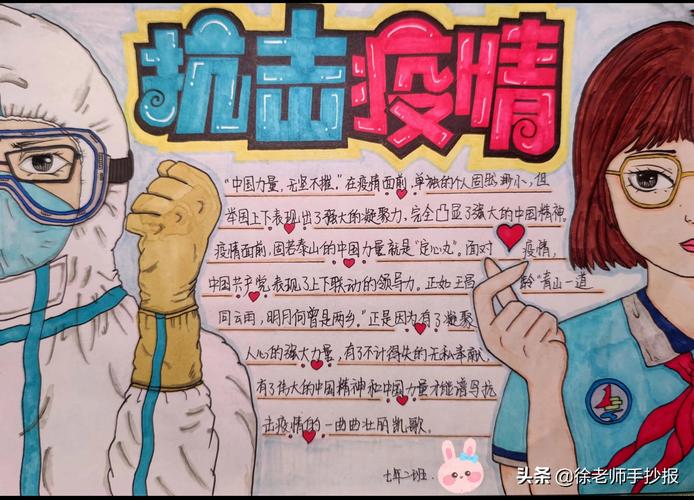 抗击疫情
"中国力量,无坚不摧。"在疫情面前,单独的个人固然渺小,但
举国上下表现出了强大的凝聚力,完全凸显了强大的中国精神。
疫情面前,固若泰山的中国力量就是"定心丸"。面对疫情,
中国共产党表现了上下联动的领导力。正如王昌龄"青山一道
同云雨,明月何曾是两乡。"正是因为有了凝聚
人心的强大力量,有了不计得失的无私奉献,
有了伟大的中国精神和中国力量才能谱写抗
击疫情的一曲曲壮丽凯歌。
七年二班
头条@徐老师手抄报